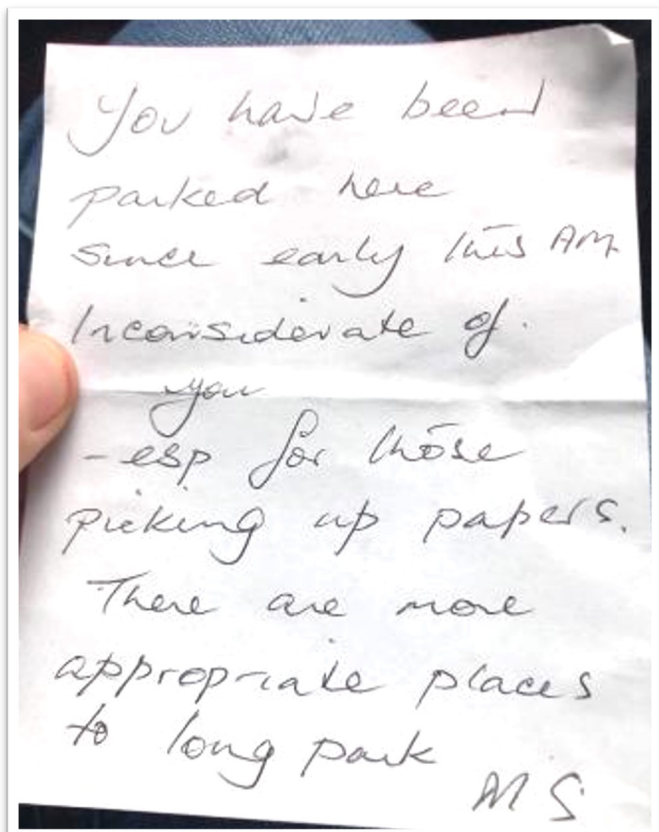 You have been
parked here
since early this AM
Inconsiderate of
you
- esp for those
picking up papers.
There are more
appropriate places
to long park
MS